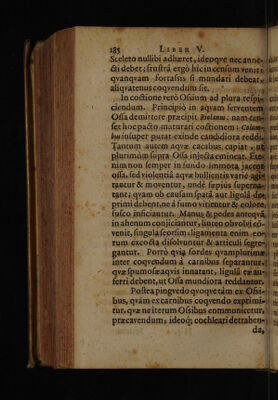 185 LIBER V.
Sceleto nullibi adhæret, ideoqve nec anne-
cti debet; frustrà ergò hic in censum venit:
qvanqvam fortassis si mundari debeat,
aliqvatenus coqvendum sit.
In coctione verò Ossium ad plura respi-
ciendum. Principiò in aqvam ferventem
Ossa demittere præcipit Riolanus: nam cen-
set hoc pacto maturari coctionem: Colum-
bus insuper putat exinde candidiora reddi.
Tantum autem aqvæ cacabus capiat, ut
plurimùm supra Ossa injecta emineat. Ete-
nim non semper in fundo immota jacent
ossa, sed violentiâ aqvæ bullientis variè agi-
tantur & moventur, unde sæpius superna-
tant; qvam ob causam spatâ aut ligulâ de-
primi debent, ne à fumo vitientur & colore
fusco inficiantur. Manus & pedes anteqvā
in ahenum conjiciantur, linteo obvolvi cō-
venit, singula seorsim; ligamenta enim eo-
rum excocta dissolvuntur & articuli segre-
gantur. Porrò qvia sordes qvamplurimæ
inter coqvendum à carnibus separantur,
qvæ spumosæ aqvis innatant, ligulâ eæ au-
ferri debent, ut Ossa mundiora reddantur.
Postea pingvedo qvoqve tàm ex Ossi-
bus, quàm ex carnibus coqvendo exprimi-
tur, qvæ ne iterum Ossibus communicetur,
præcavendum, ideoq; cochleari detrahen-
da,